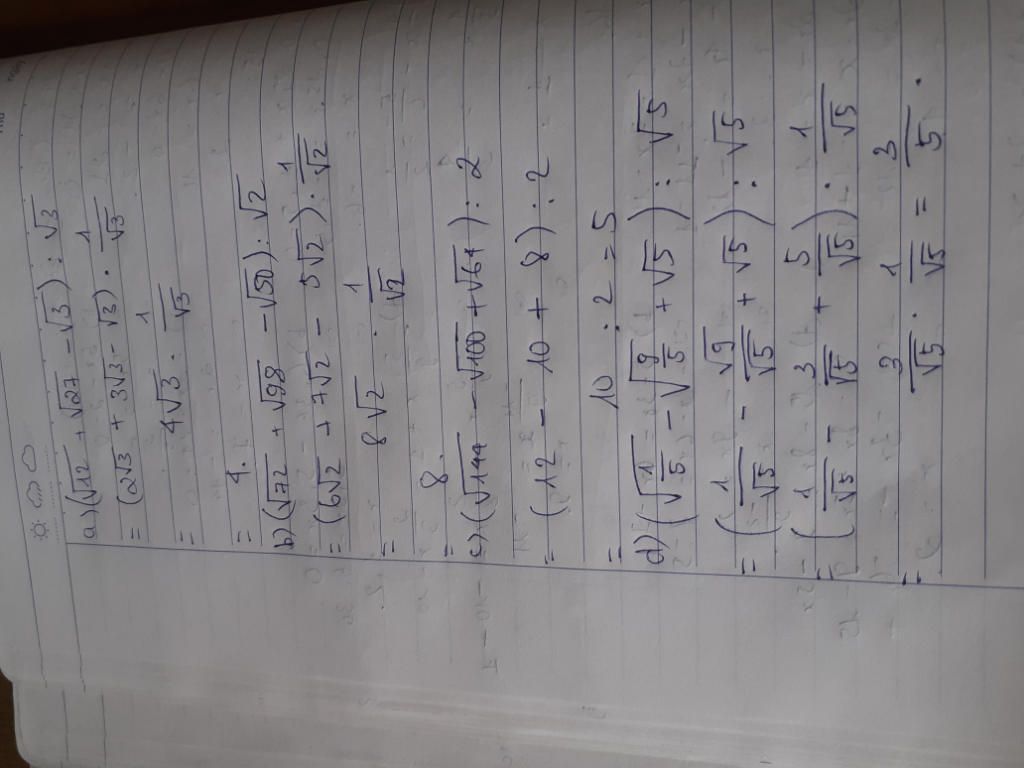 a) (√12 + √27 - √3) : √3
= (2√3 + 3√3 - √3) . 1/√3
= 4√3 . 1/√3
= 4.
b) (√72 + √98 - √50) : √2
= (6√2 + 7√2 - 5√2) . 1/√2
= 8√2 . 1/√2
= 8.
c) (√144 - √100 + √64) : 2
= (12 - 10 + 8) : 2
= 10 : 2 = 5
d) (√(1/5) - √(9/5) + √5) : √5
= (1/√5 - √9/√5 + √5) : √5
= (1/√5 - 3/√5 + 5/√5) . 1/√5
= 3/√5 . 1/√5 = 3/5 .